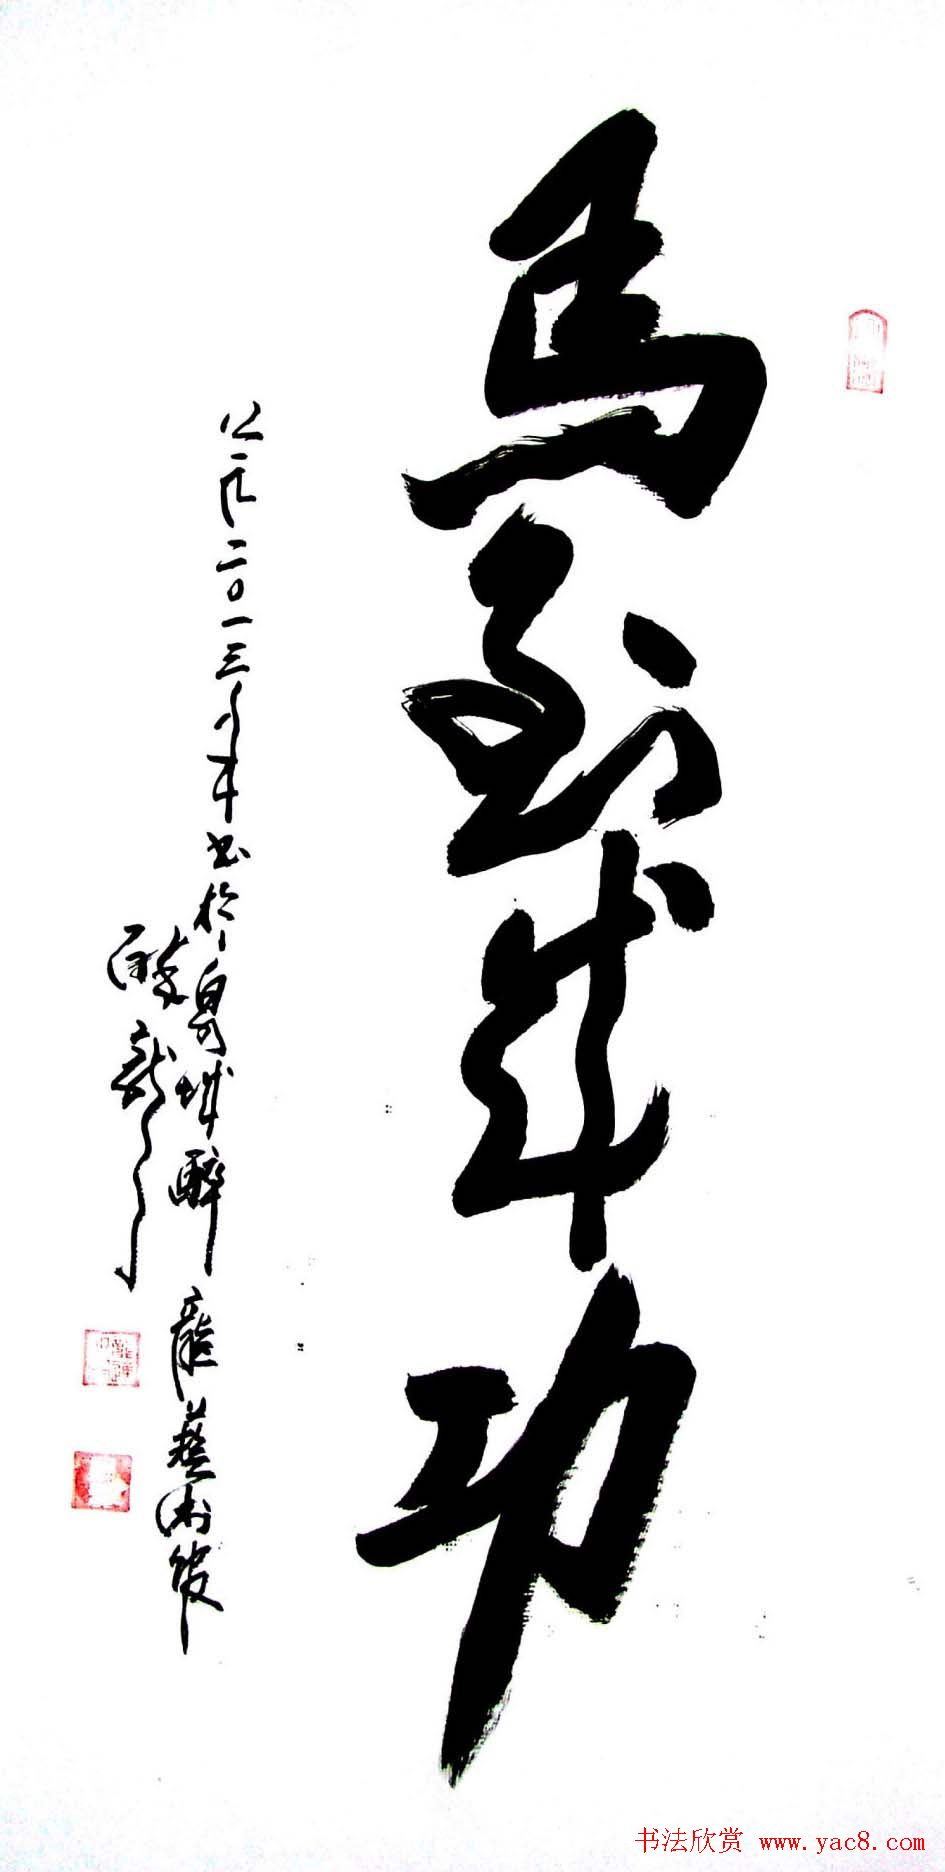 馬到成功
公元二〇一三年書於
城醉龍藝術館
醉龍
书法欣赏 www.yac8.com